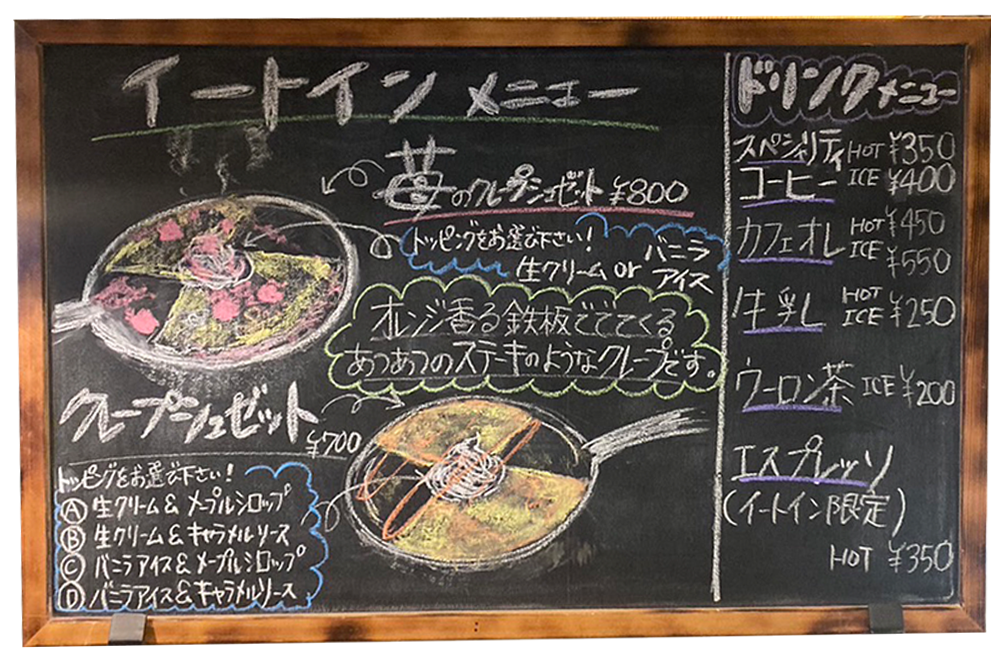 イートインメニュー
苺のクレープシュゼット ¥800
トッピングをお選び下さい!
生クリーム or バニラ
アイス
オレンジ香る鉄板ででてくる
あつあつのステーキのようなクレープです。
クレープシュゼット
¥700
トッピングをお選び下さい!
Ⓐ 生クリーム & メープルシロップ
Ⓑ 生クリーム & キャラメルソース
Ⓒ バニラアイス & メープルシロップ
Ⓓ バニラアイス & キャラメルソース
ドリンクメニュー
スペシャリティ HOT ¥350
コーヒー ICE ¥400
カフェオレ HOT ¥450
ICE ¥550
牛乳 HOT
ICE ¥250
ウーロン茶 ICE ¥200
エスプレッソ
(イートイン限定)
HOT ¥350